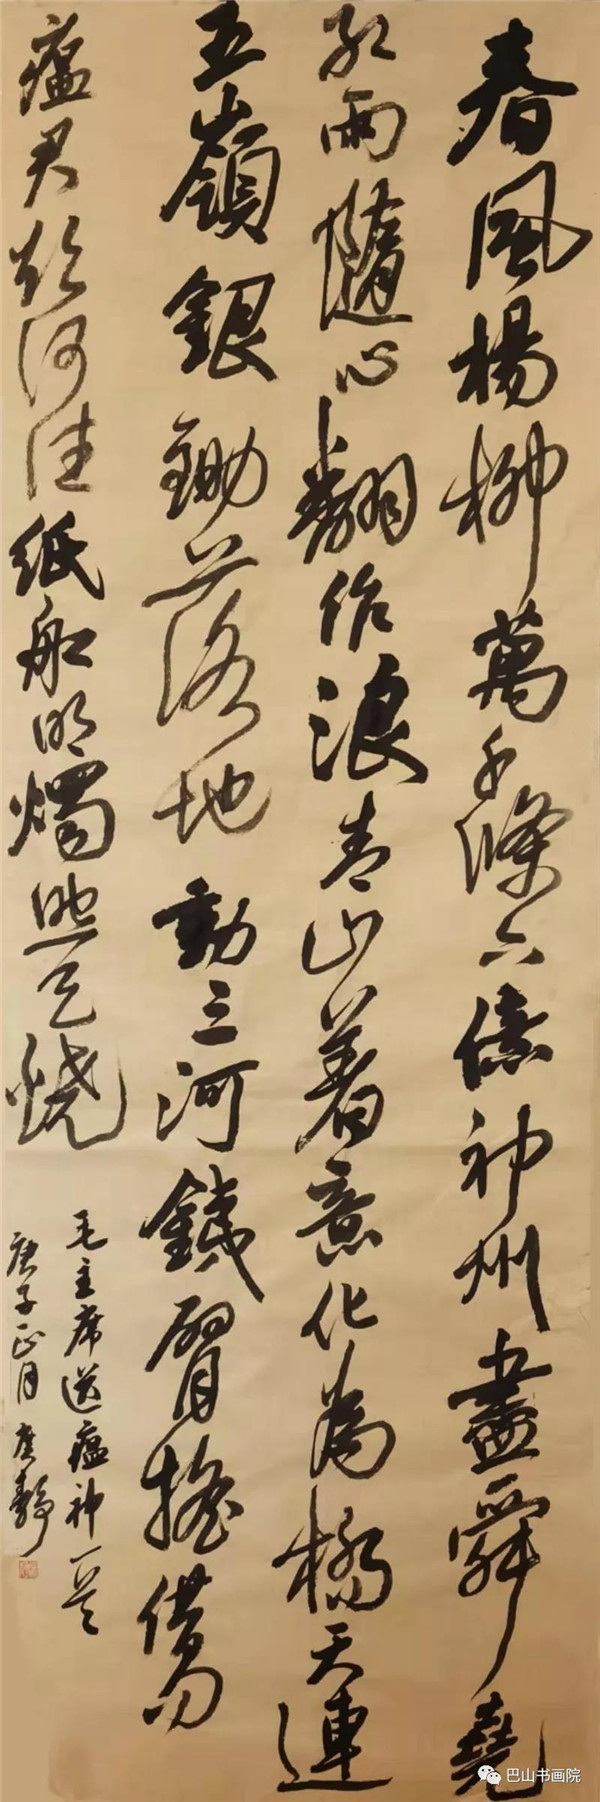 春風楊柳萬千條六億神州盡舜堯
紅雨隨心翻作浪青山着意化為橋天連
五嶺銀鋤落地動三河鐵臂搖借问
瘟君欲何往紙船明燭照天燒
毛主席送瘟神一首
庚子正月唐靜
巴山书画院